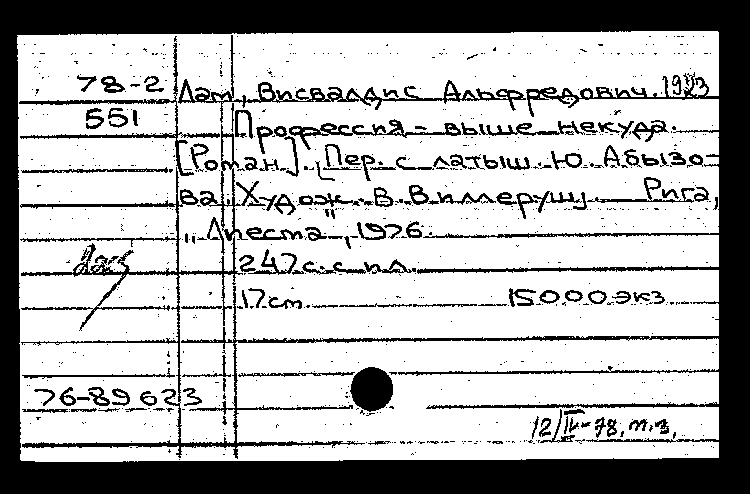 78-2 Лам, Висвалдис Альфредович. 1923
551 Профессия - выше некуда.
[Роман]. [Пер. с латыш. Ю. Абызо-
ва. Худож. В. Виллеруш]. Рига,
„Лиесма", 1976.
247с. с ил.
17см. 15000 экз.
76-89623
12/IV-78, т.з.